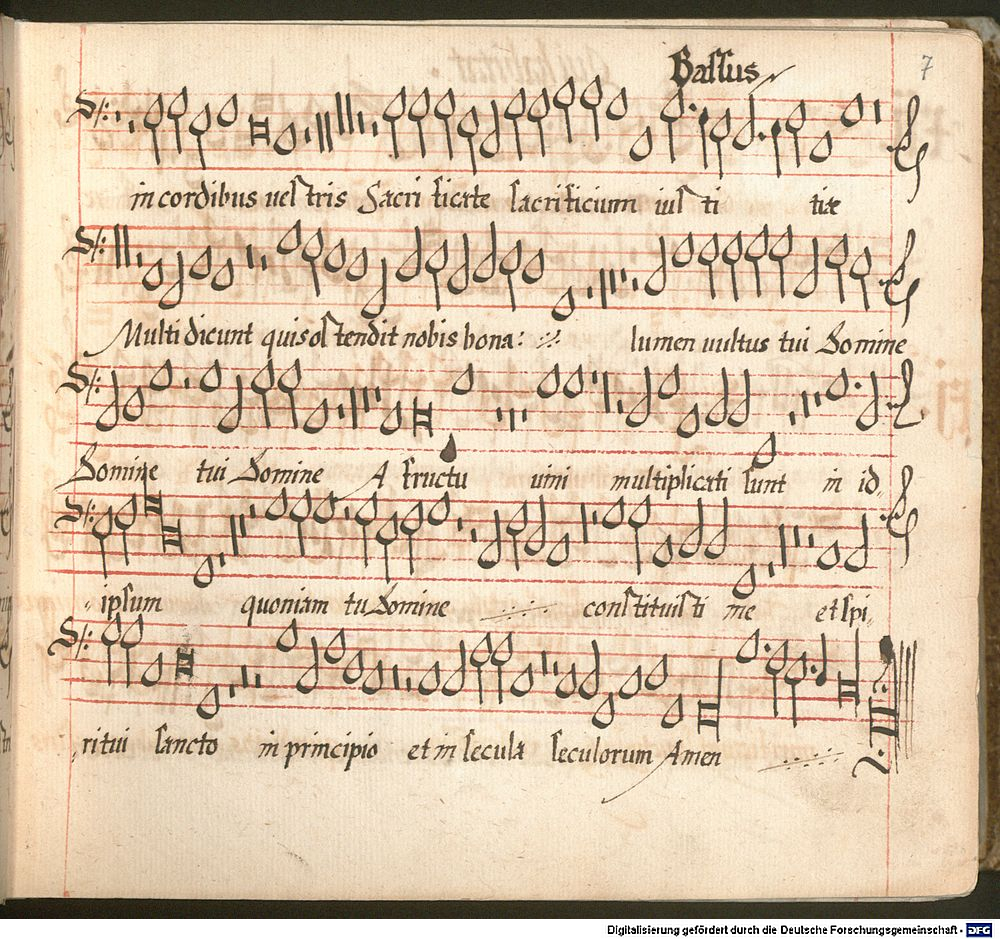 Bassus
7
in cordibus vestris Sacrificate sacrificium iusti tiæ
Multi dicunt quis ostendit nobis bona: ·//· lumen vultus tui Domine
Domine tui Domine A fructu vini multiplicati sunt in id-
-ipsum quoniam tu Domine ·//· constituisti me et spi-
ritui sancto in principio et in secula seculorum Amen ·//·
Digitalisierung gefördert durch die Deutsche Forschungsgemeinschaft - DFG